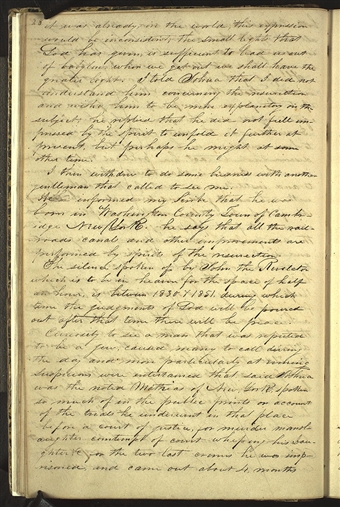 28
it was already in the world this expression
would be inconsistent, the small light that
God has given is sufficient to lead us out
of babylon, when we get out we shall have the
greater light. I told Joshua that I did not
understand him concerning the resurrection
and wished him to be more explanatory on the
subject, he replied that he did not feel im-
pressed by the spirit to unfold it further at
present, but perhaps he might at some
other time.
I then withdrew to do some business with another
gentleman that called to see me.
He informed my Scribe that he was
born in Washington County Town of Camb-
ridge New York. he says that all the rail-
roads canals and other improvements are
performed by spirits of the resurrection.
The silence spoken of by John the Revelator
which is to be in heaven for the space of half
an hour, is between 1830 & 1851, during which
time the judgments of God will be poured
out after that time there will be peace.
Curiosity to see a man that was reputed
to be a jew, caused many to call during
the day and more particularly at evening
suspicions were entertained that said Joshua
was the noted Matthias of New York, spoken
so much of in the public prints on account
of the trials he underwent in that place
before a court of justice, for murder mansl-
aughter contempt of court whiping his Dau-
ghter &c for the two last crimes he was imp-
risoned, and came out about 4 months